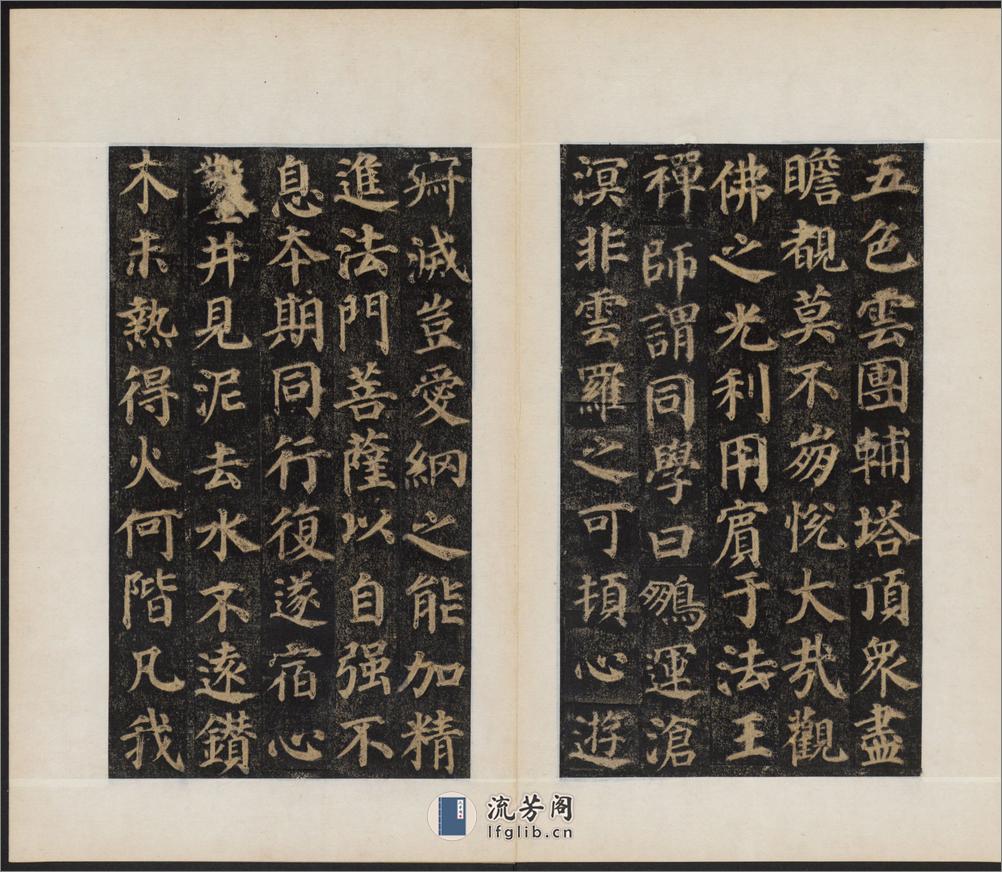 五色雲團輔塔頂衆盡
瞻覩莫不蹈悅大哉觀
佛之光利用賓于法王
禪師謂同學曰鵬運滄
溟非雲羅之可頓心遊
寂滅豈愛網之能加精
進法門菩薩以自强不
息本期同行復遂宿心
鑿井見泥去水不遠鑽
木未熱得火何階凡我
流芳阁
lfglib.cn